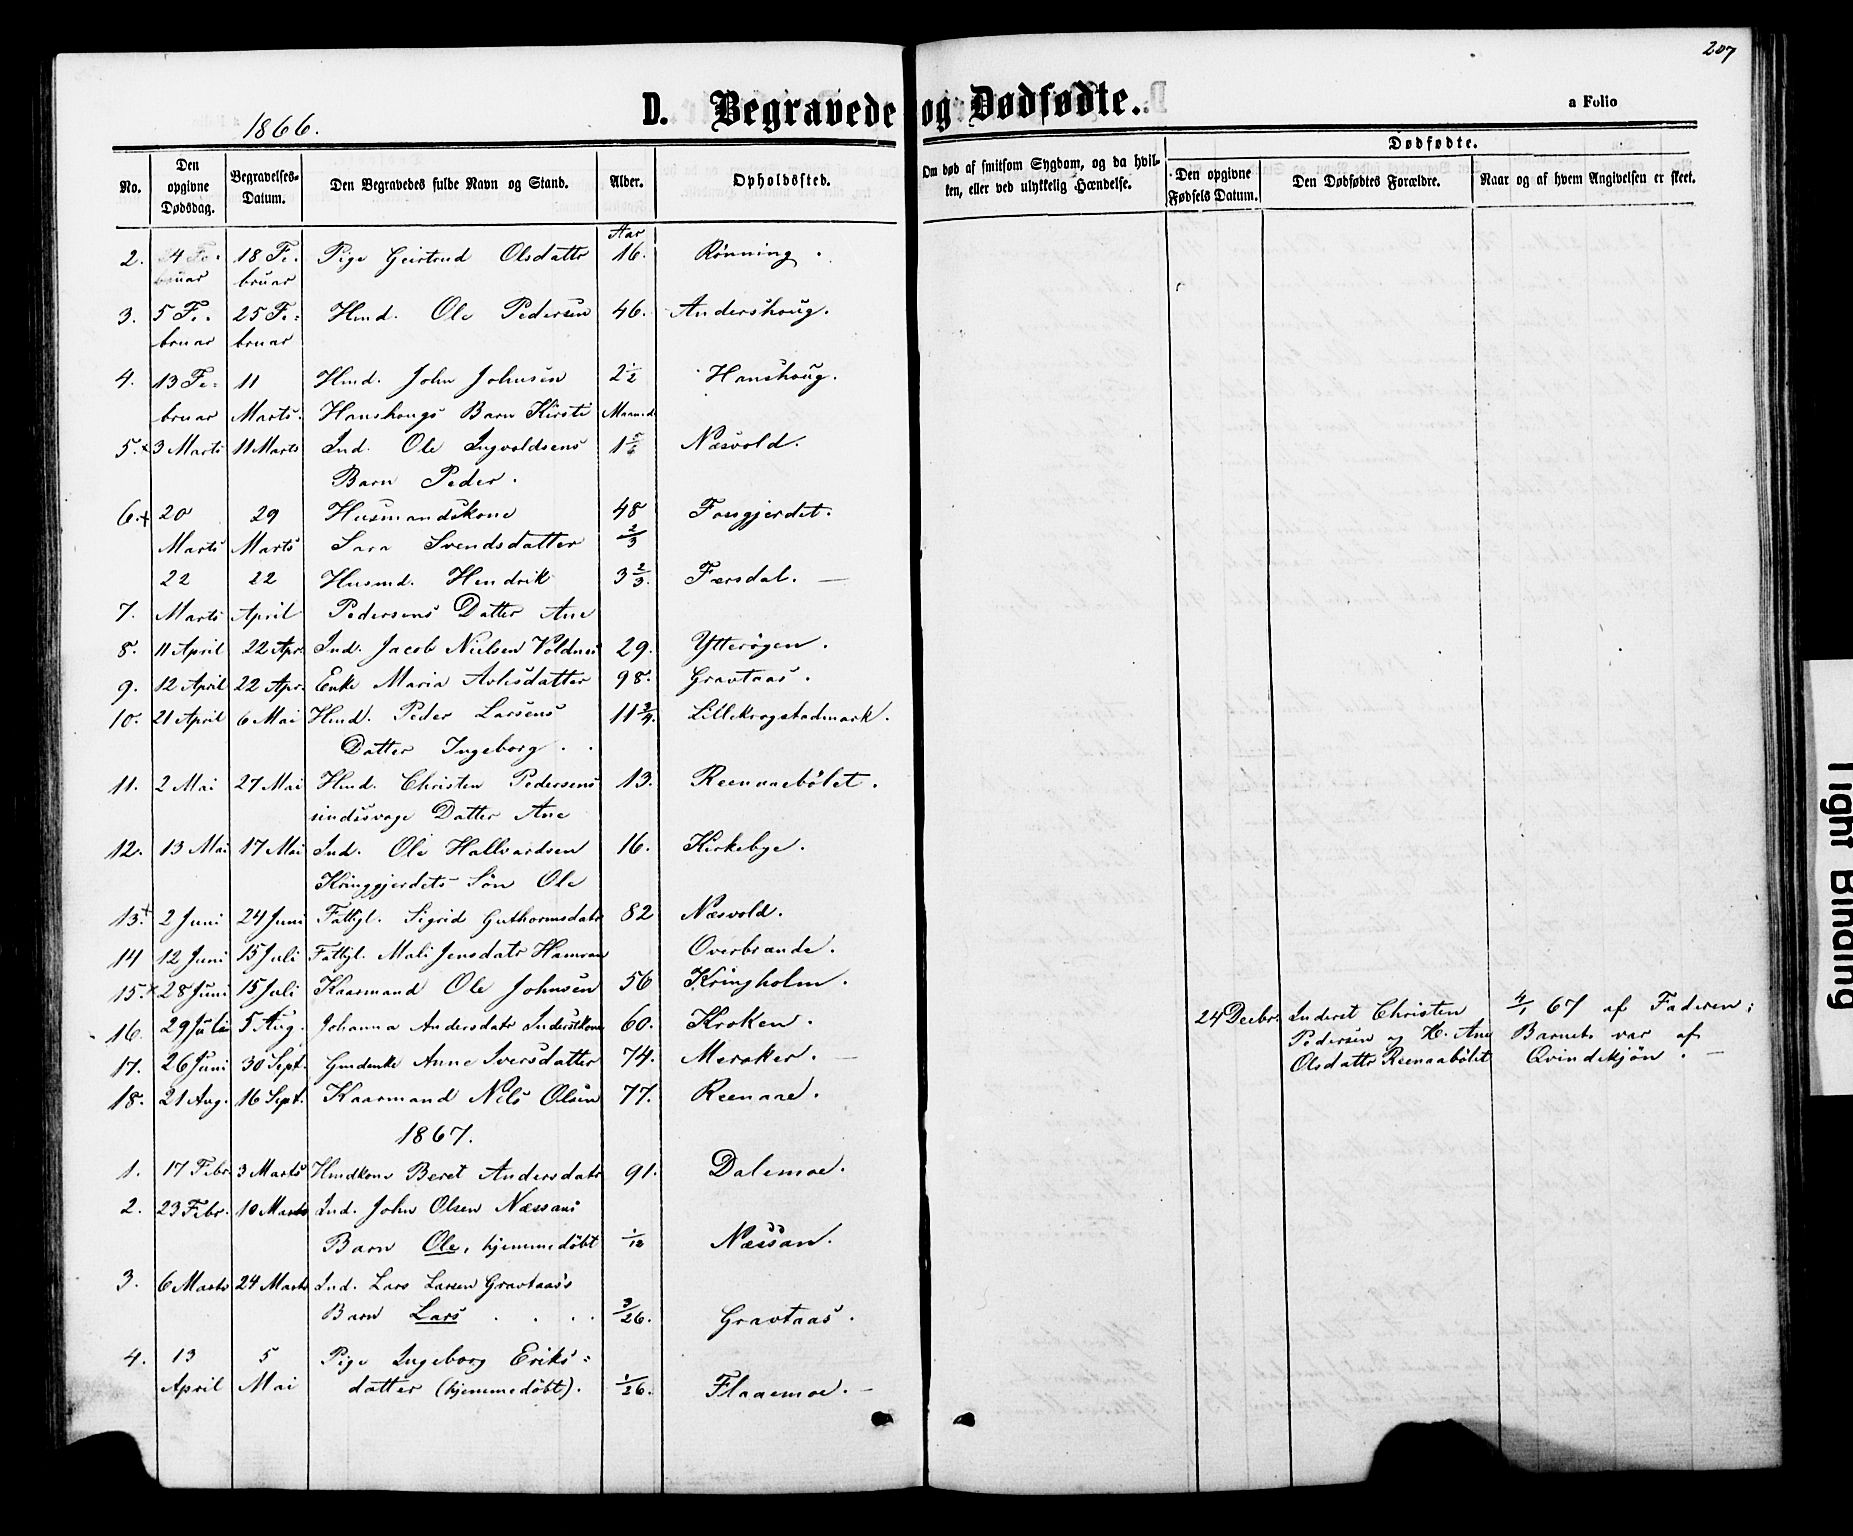 207
D. Begravede og Dødfødte.
a Folio
1866.
No.
Den opgivne Dødsdag.
Begravelses-Datum.
Den Begravedes fulde Navn og Stand.
Alder.
Opholdssted.
Om død af smitsom Sygdom, og da hvilken, eller ved ulykkelig Hændelse.
Dødfødte.
Den opgivne Fødsels Datum.
Den Dødfødtes Forældre.
Naar og af hvem Angivelsen er skeet.
Aar
2. 14 Fe- 18 Fe- Pige Geirtrud Olsdattr 16. Rönning.
bruar bruar
3. 5 Fe- 25 Fe- Hmd. Ole Pedersen 46. Andershoug.
bruar bruar
4. 13 Fe- 11 Hmd. John Johnsen 2½ Hanshoug.
bruar Marts. Hanshougs Barn Kirsti Maaned
5.+ 3 Marts 11 Marts Ind. Ole Ingvoldsens 1 5/6 Næsvold.
Barn Peder.
6.+ 20 29 Husmandskone 48 Fossgjerdet.
Marts Marts Sara Svendsdatter 2/3
22 22 Husmd. Hendrik 3 2/3. Færsdal. —
7. Marts April Pedersens Datter Ane
8. 11 April 22 Apr. Ind. Jacob Nielsen Voldnes 29. Ytterögen.
9. 12 April 22 Apr. Enke Maria Arlisdatter 98. Gravtaas.
10. 21 April 6 Mai Hmd. Peder Larsens 11 3/4. Lillekrogstadmark.
Datter Ingeborg.
11. 2 Mai 27 Mai Hmd. Christen Pedersens 13. Reenaaebölet.
sindssvage Datter Ane
12. 13 Mai 17 Mai Ind. Ole Hallvardsen 16. Kirkebye.
Kringgjerdets Sön Ole
13+ 2 Juni 24 Juni Fattigl. Sigrid Guthormsdatr 82 Næsvold.
14 12 Juni 15 Juli Fattigl. Mali Jensdatr Hamran Overbrænde.
15.+ 28 Juni 15 Juli Kaarmand Ole Johnsen 56 Kringholm.
16. 29 Juli 5 Aug. Johanna Andersdatr Inderstkone 60. Kroken.
17. 26 Juni 30 Sept. Gmdenke Anne Iversdatter 74. Meraker. —
18. 21 Aug. 16 Sept. Kaarmand Nils Olsen 77. Reenaae.
24 Decbr. Inderst Christen 4/1 67 af Faderen;
Pedersen og H. Ane Barnet var af
Olsdattr Reenaabölet Qvindekjön. —
1867.
1. 17 Febr. 3 Marts Hmdkone Beret Andersdatr 91. Dalemoe.
2. 23 Febr. 10 Marts Ind. John Olsen Næssans
Barn Ole, hjemmedöbt 1/12 Næssan.
3. 6 Marts 24 Marts Ind. Lars Larsen Gravtaas's
Barn Lars . . . . 3/26. Gravtaas.
4. 13 5 Pige Ingeborg Eriks-
April Mai datter (hjemmedöbt). 1/26. Flaaemoe. —
Tight Binding